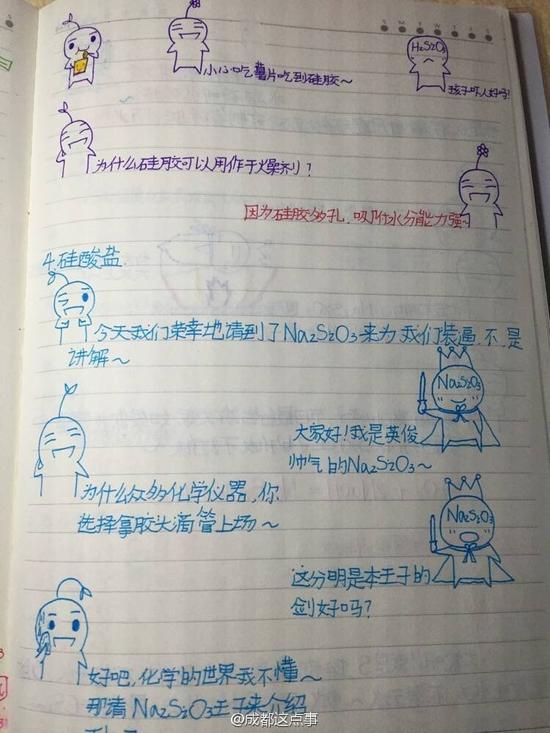 H₂SiO₃
小心吃薯片吃到硅胶～
孩子吓人好吗!
为什么硅胶可以用作干燥剂?
因为硅胶多孔,吸附水分能力强
4.硅酸盐
今天我们荣幸地请到了Na₂SiO₃来为我们装逼,不,是
讲解～
Na₂SiO₃
大家好!我是英俊
帅气的Na₂SiO₃～
为什么众多化学仪器,你
选择拿胶头滴管上场～
Na₂SiO₃
这分明是本王子的
剑好吗?
好吧,化学的世界我不懂～
那请Na₂SiO₃王子来介绍
@成都这点事